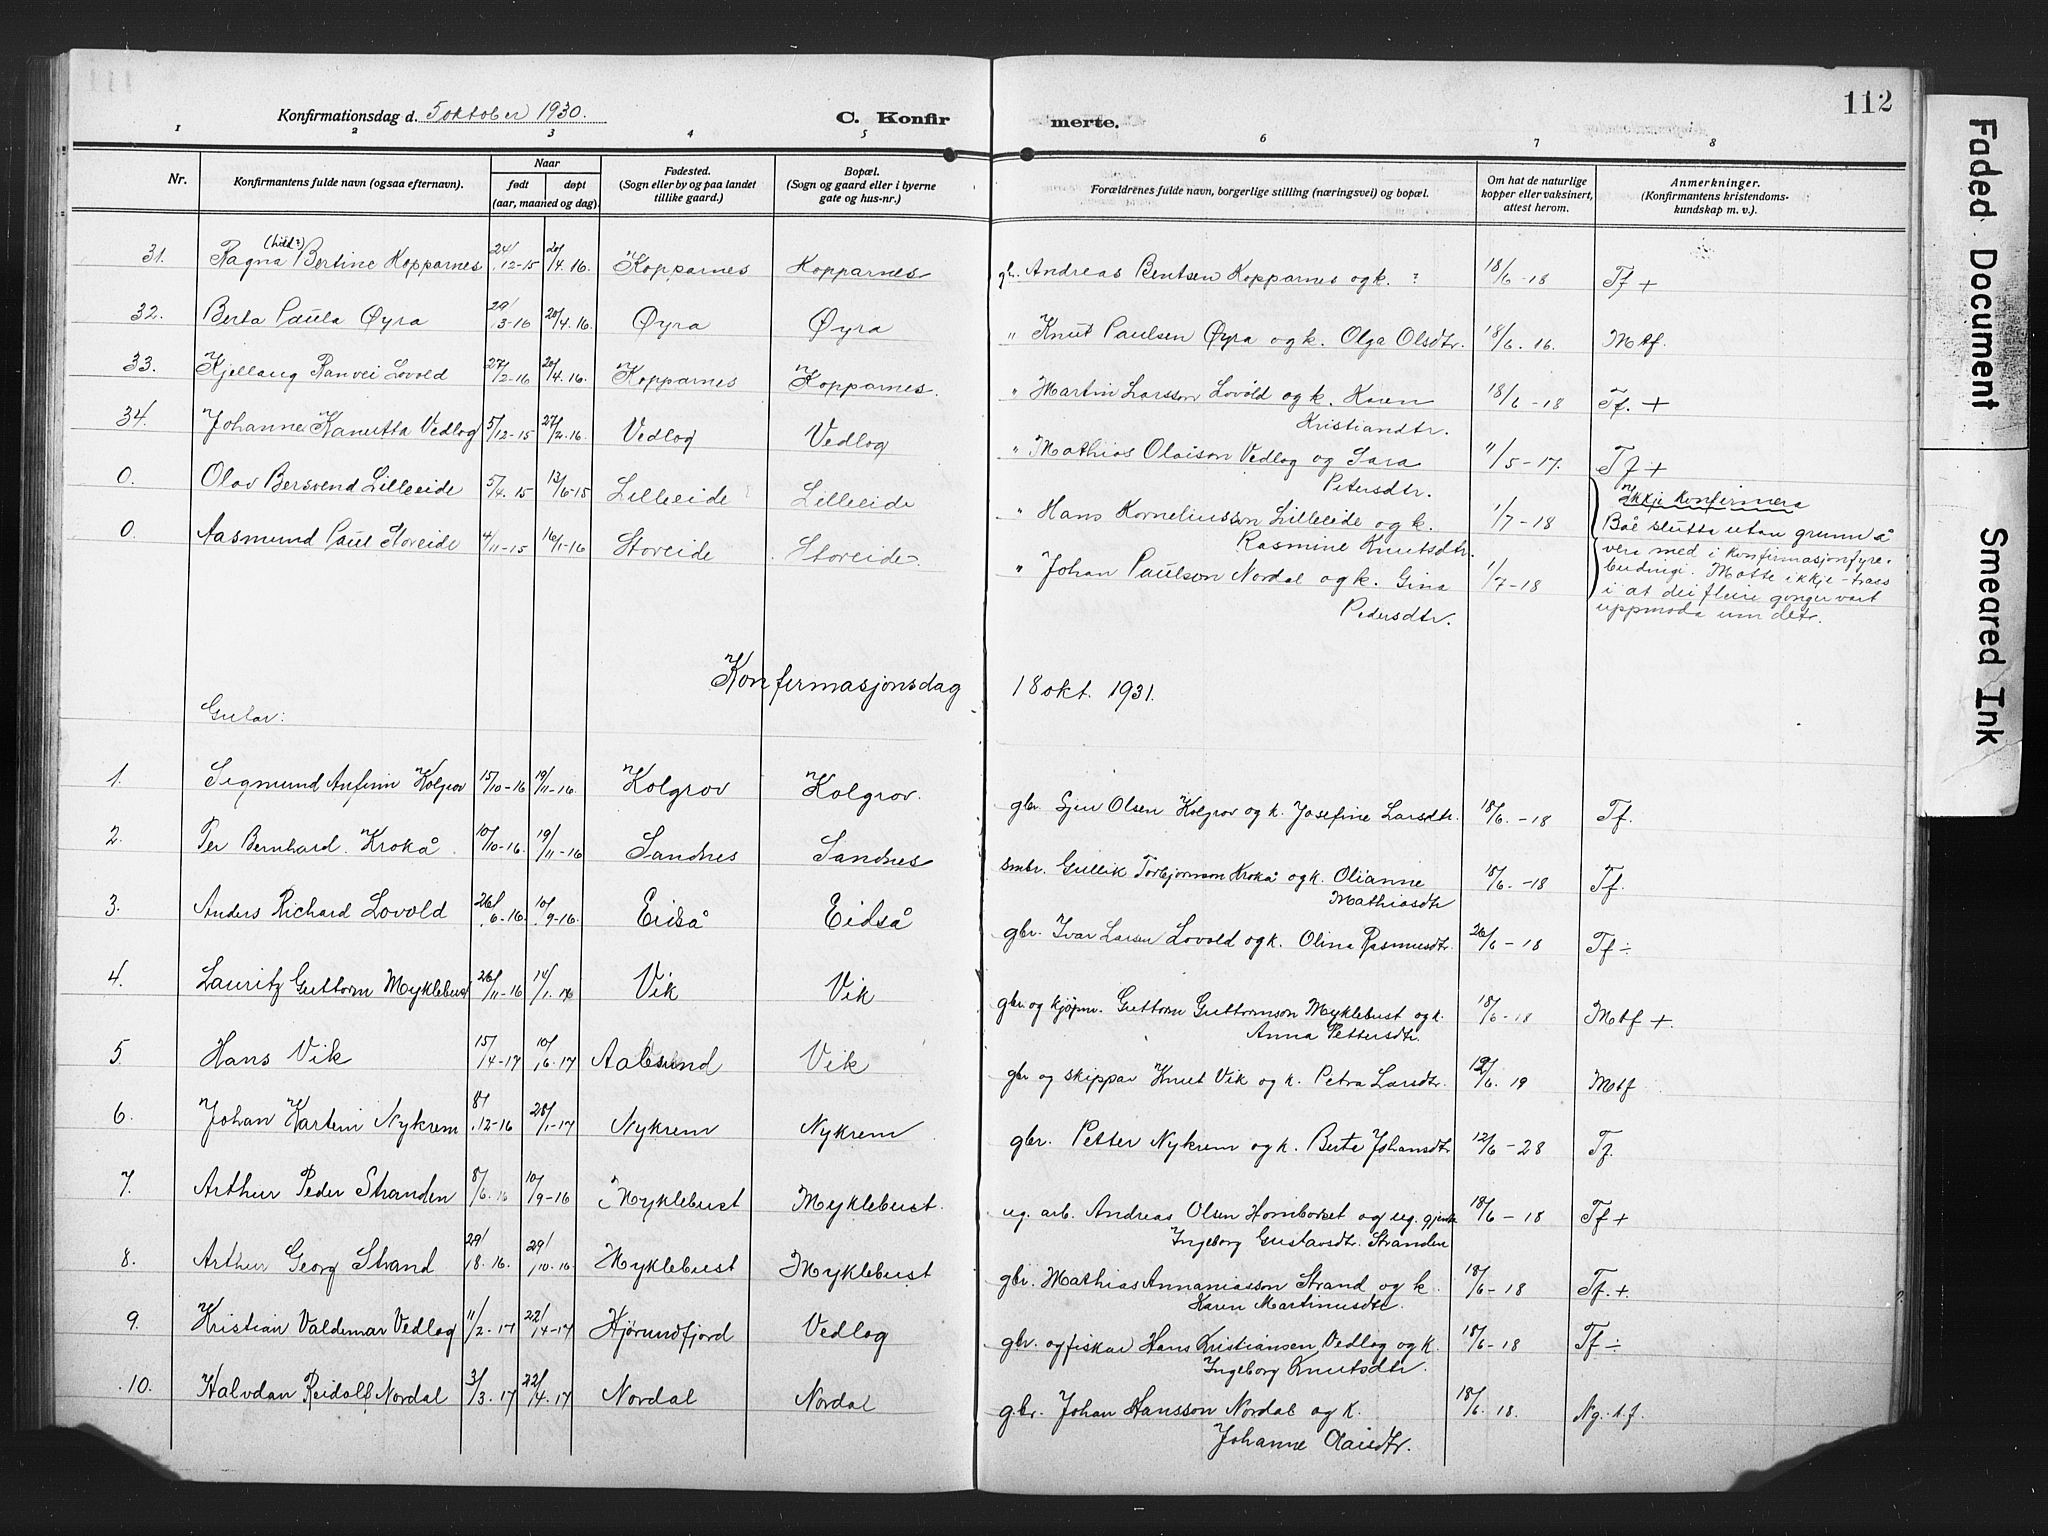 112
Konfirmationsdag d. 5 oktober 1930.
C. Konfirmerte.
1 2 3 4 5 6 7 8
Nr.
Konfirmantens fulde navn (ogsaa efternavn).
Naar
født døpt
(aar, maaned og dag).
Fødested.
(Sogn eller by og paa landet
tillike gaard.)
Bopæl.
(Sogn og gaard eller i byerne
gate og hus-nr.)
Forældrenes fulde navn, borgerlige stilling (næringsvei) og bopæl.
Om hat de naturlige
kopper eller vaksinert,
attest herom.
Anmerkninger.
(Konfirmantens kristendoms-
kundskap m. v.)
31. Ragna Bertine Kopparnes 24/12-15 20/4. 16. Kopparnes Kopparnes gbr. Andreas Bentsen Kopparnes og k. ? 18/6-18 Tf +
32. Berta Paula Øyra 29/3-16 20/4. 16. Øyra Øyra " Knut Paulsen Øyra og k. Olga Olsdtr. 18/6. 16. Mtf.
33. Kjellaug Ranvei Lovold 27/2-16 20/4. 16. Kopparnes Kopparnes. " Martin Larsson Lovold og k. Karen 18/6-18 Tf. +
Kristiandtr.
34. Johanne Kanutta Vedlog 5/12-15 27/2. 16. Vedlog Vedlog " Mathias Olaison Vedlog og Sara 11/5-17. Tf +
Petersdtr.
0. Olav Bersvend Lilleeide 5/4. 15 13/6-15 Lilleeide Lilleeide " Hans Korneliusson Lilleeide og k. 1/7-18 Ikkje konfirmera
Rasmine Knutsdtr.
Båe slutta utan grunn å
0. Aasmund Paul Storeide 4/11-15 16/1-16 Storeide Storeide. " Johan Paulson Nordal og k. Gina 1/7-18
Pedersdtr.
vera med i konfirmasjonfyre-
budingi. Møtte ikkje - trass
i at dei fleire gonger vart
uppmoda um det.
Konfirmasjonsdag 18 okt. 1931.
Gutar:
1. Sigmund Anfinn Kolgrov 15/10-16 19/11-16. Kolgrov Kolgrov. gbr. Olsen Kolgrov og k. Josefine Larsdtr. 18/6. -18 Tf.
2. Per Bernhard Krokå 10/10-16. 19/11-16 Sandnes Sandnes smbr. Gullik Torbjørnson Krokå og k. Olianne 18/6. -18 Tf.
Mathiasdtr
3. Anders Richard Lovold 26/6-16 10/9-16 Eidså Eidså gbr. Ivar Larsen Lovold og k. Olina Rasmusdtr. 26/6-18 Tf ÷
4. Lauritz Guttorm Myklebust 26/11-16 14/1. Vik Vik gbr. og kjøpm. Guttorm Guttormson Myklebust og k. 18/6-18 Mtf +.
Anna Pettersdtr.
5. Hans Vik 15/4-17 10/6-17 Aalesund Vik gbr og skippar Knut Vik og k. Petra Larsdtr. 12/6. 19 Mtf
6. Johan Kartein Nykrem 8/12-16 28/1-17 Nykrem Nykrem gbr. Petter Nykrem og k. Berte Johansdtr 12/6-28 Tf.
7. Arthur Peder Stranden 8/6. 16 10/9-16 Myklebust Myklebust. ug. arb. Andreas Olsen Hornborset og ug. gjente 18/6-18 Tf +
Ingeborg Gustavsdtr. Stranden
8. Arthur Georg Strand 29/8. 16. 29/10-16 Myklebust Myklebust gbr. Mathias Annaniasson Strand og k. 18/6-18 Tf. +.
Karen Martinusdtr.
9. Kristian Valdemar Vedlog 11/2. 17 22/4-17 Hjørundfjord Vedlog gbr. og fiskar Hans Kristiansen Vedlog og k. 18/6-18 Tf ÷
Ingeborg Knutsdtr.
10. Halvdan Reidolf Nordal 3/3. 17 22/4. 17 Nordal Nordal gbr. Johan Hansson Nordal og k. 18/6. 18. Ng. t. f.
Johanne Olaisdtr.
Faded Document
Smeared Ink